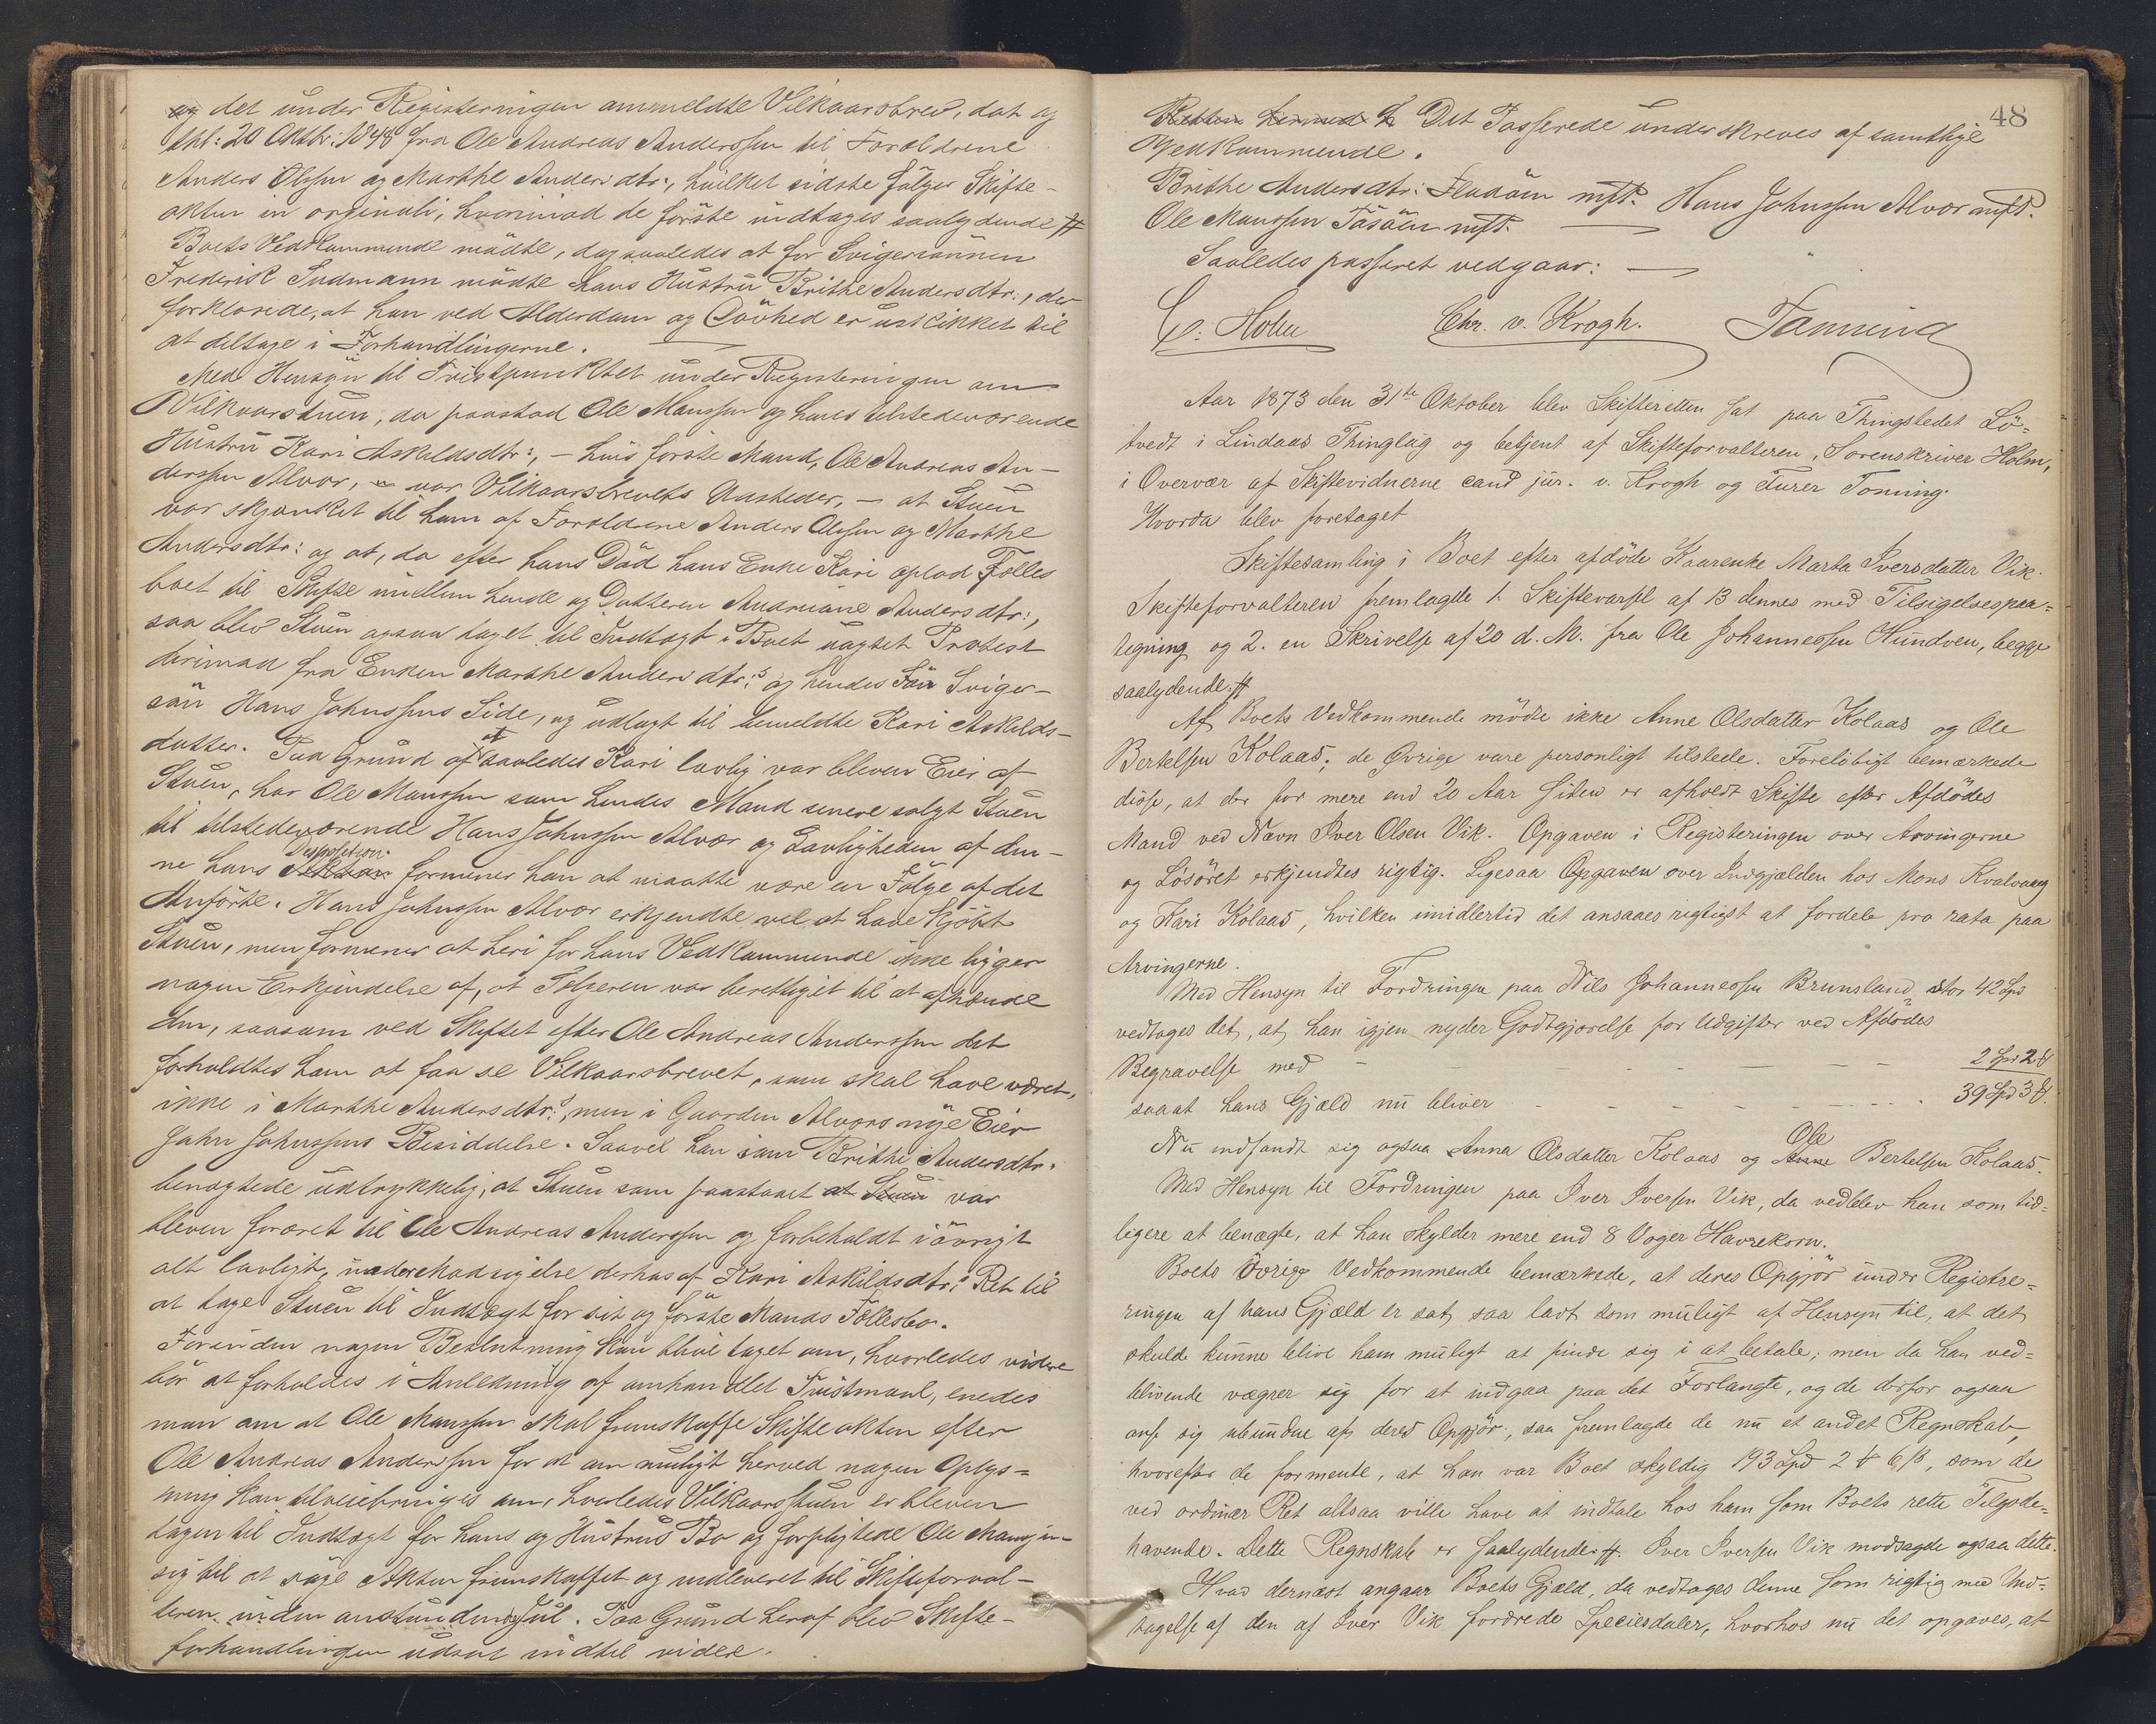 og det under Registeringen anmeldte Vilkaarsbrev, dat og
thl: 20 Oktbr: 1848 fra Ole Andreas Anderssen til Forældrene
Anders Olssen og Marthe Andersdtr:, hvilket sidste følger Skifte-
akten in originali, hvorimod de første indtages saalydende #
Boets Vedkommende mødte, dog saaledes at for Svigersønnen
Frederik Sudmann mødte hans Hustru Brithe Andersdtr:, der
forklarede, at han ved Alderdom og Døvhed er uskikket til
at deltage i Forhandlingerne.
Med Hensyn til Tvistpunktet under Registeringen om
Vilkaarstuen, da paastod Ole Monssen og hans tilstedeværende
Hustru Kari Askildsdtr:, – hvis første Mand, Ole Andreas An-
derssen Alvær, var Vilkaarsbrevets Udsteder, – at Stuen
var skjænket til ham af Forældrene Anders Olssen og Marthe
Andersdtr: og at, da efter hans Død hans Enke Kari oplod Fælles
boet til Skifte mellem hende og Datteren Andreane Andersdtr:,
saa blev Stuen ogsaa taget til Indtægt i Boet uagtet Protest
derimod fra Enken Marthe Andersdtr:s og hendes Sviger-
søn Hans Johnssens Side, og udlagt til bemeldte Kari Askilds-
datter. Paa Grund af at saaledes Kari lovlig var bleven Eier af
Stuen, har Ole Monssen som hendes Mand senere solgt Stuen
til tilstedeværende Hans Johnssen Alvær og Lovligheden af den-
ne hans Disposition formener han at maatte være en Følge af det
Anførte. Hans Johnssen Alvær erkjendte vel at have kjøbt
Stuen, men formener at heri for hans Vedkommende ikke ligger
nogen Erkjendelse af, at Sælgeren var berettiget til at afhænde
den, saasom ved Skiftet efter Ole Andreas Anderssen det
forholdtes ham at faa se Vilkaarsbrevet, som skal have været,
ikke i Marthe Andersdtr:s, men i Gaarden Alværs nye Eier
John Johnssens Besiddelse. Saavel han som Brithe Andersdtr:
benægtede udtrykkelig, at Stuen som paastaaet at Stuen var
bleven foræret til Ole Andreas Anderssen og forbeholdt iøvrigt
alt lovligt, under Modsigelse derhos af Kari Askildsdtr:s Ret til
at tage Stuen til Indtægt for sit og første Mands Fællesbo.
Forinden nogen Beslutning kan blive taget om, hvorledes videre
bør at forholdes i Anledning af omhandlet Tvistmaal, enedes
man om at Ole Monssen skal fremskaffe Skifteakten efter
Ole Andreas Anderssen for at om muligt herved nogen Oplys=
ning kan tilveiebringes om, hvorledes Vilkaarsstuen er bleven
tagen til Indtægt for hans og Hustrus Bo og forpligtede Ole Monssen
sig til at søge Akten fremskaffet og indleveret til Skifteforval-
teren inden anstundende Jul. Paa Grund heraf blev Skifte-
forhandlingen udsat indtil videre.
48
Retten hermed h Det Passerede underskreves af samtlige
Vedkommende.
Brithe Andersdtr: Fladøen mfP. Hans Johnssen Alvær mfP.
Ole Monssen Tasøen mfP.
Saaledes passeret vedgaar:
C. Holm Chr. v. Krogh. Tonning
Aar 1873 den 31te Oktober blev Skifteretten sat paa Thingstedet Lø=
tvedt i Lindaas Thinglag og betjent af Skifteforvalteren, Sorenskriver Holm,
i Overvær af Skiftevidnerne cand jur. v. Krogh og Furer Tonning.
Hvorda blev foretaget
Skiftesamling i Boet efter afdøde Kaarenke Marta Iversdatter Vik.
Skifteforvalteren fremlagde 1. Skiftevarsel af 13 dennes med Tilsigelsespaa=
tegning og 2. en Skrivelse af 20 d. M. fra Ole Johannessen Hundven, begge
saalydende #
Af Boets Vedkommende mødte ikke Anne Olsdatter Kolaas og Ole
Bertelsen Kolaas; de Øvrige vare personligt tilstede. Foreløbigt bemærkede
disse, at der for mere end 20 Aar siden er afholdt Skifte efter Afdødes
Mand ved Navn Iver Olsen Vik. Opgaven i Registeringen over Arvingerne
og Løsøret erkjendtes rigtig. Ligesaa Opgaven over Indgjælden hos Mons Kvalvaag
og Kari Kolaas, hvilken imidlertid det ansaaes rigtigst at fordele pro rata paa
Arvingerne.
Med Hensyn til Fordringen paa Nils Johannessen Brunsland, stor 42 Spd
vedtoges det, at han igjen nyder Godtgjørelse for Udgifter ved Afdødes
Begravelse med – – – – – – 2 Spd 2 ₰
saaat hans Gjæld nu bliver – – – – – – 39 Spd 3 ₰.
Nu indfandt sig ogsaa Anna Olsdatter Kolaas og Ole Bertelsen Kolaas.
Med Hensyn til Fordringen paa Iver Iversen Vik, da vedblev han som tid=
ligere at benægte, at han skylder mere end 8 Voger Havrekorn.
Boets Øvrige Vedkommende bemærkede, at deres Opgjør under Registre=
ringen af hans Gjæld er sat saa lavt som muligt af Hensyn til, at det
skulde kunne blive ham muligt at finde sig i at betale; men da han ved=
blivende vægrer sig for at indgaa paa det Forlangte, og de derfor ogsaa
anse sig ubundne af deres Opgjør, saa fremlagde de nu et andet Regnskab,
hvorefter de formente, at han var Boet skyldig 193 Spd 2 ₰ 6 ß, som de
ved ordinær Ret altsaa ville have at indtale hos ham som Boets rette Tilgode=
havende. Dette Regnskab er saalydende #. Iver Iversen Vik modsagde ogsaa dette.
Hvad dernæst angaar Boets Gjæld, da vedtoges denne som rigtig med Und=
tagelse af den af Iver Vik fordrede Speciesdaler, hvorhos nu det opgaves, at